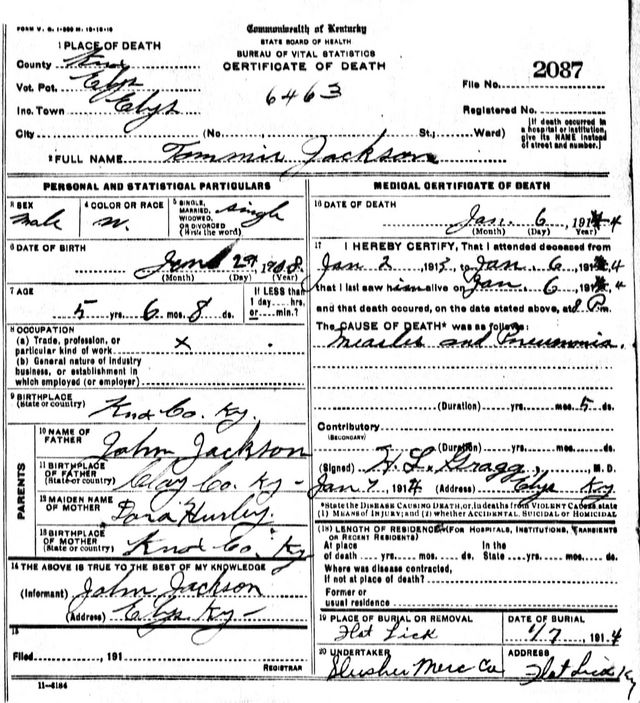 FORM V. S. 1-300 M. 10-10-10
Commonwealth of Kentucky
STATE BOARD OF HEALTH
BUREAU OF VITAL STATISTICS
CERTIFICATE OF DEATH
1 PLACE OF DEATH
County Knox
Vot. Pct. Elys
Inc. Town Elys
City (No. St.; Ward)
6463
2087
File No.
Registered No.
[If death occurred in a hospital or institution, give its NAME instead of street and number.]
2 FULL NAME Tommie Jackson
PERSONAL AND STATISTICAL PARTICULARS
3 SEX
Male
4 COLOR OR RACE
W.
5 SINGLE, MARRIED, WIDOWED, OR DIVORCED (Write the word)
Single
6 DATE OF BIRTH
29, 1908
(Month) (Day) (Year)
7 AGE
5 yrs. 6 mos. 8 ds.
If LESS than 1 day ___ hrs. or ___ min.?
8 OCCUPATION
(a) Trade, profession, or particular kind of work x
(b) General nature of industry business, or establishment in which employed (or employer)
9 BIRTHPLACE
(State or country) Knox Co. Ky.
PARENTS
10 NAME OF FATHER John Jackson
11 BIRTHPLACE OF FATHER (State or country) Clay Co. Ky -
12 MAIDEN NAME OF MOTHER Dora Hurley.
13 BIRTHPLACE OF MOTHER (State or country) Knox Co. Ky
14 THE ABOVE IS TRUE TO THE BEST OF MY KNOWLEDGE
(Informant) John Jackson
(Address) Elys Ky -
15
Filed 191
REGISTRAR
11-6184
MEDICAL CERTIFICATE OF DEATH
16 DATE OF DEATH
Jan. 6, 1914
(Month) (Day) (Year)
17 I HEREBY CERTIFY, That I attended deceased from
Jan 2 1913, to Jan. 6, 1914
that I last saw him alive on Jan. 6, 1914
and that death occured, on the date stated above, at 8 P. m.
The CAUSE OF DEATH* was as follows:
Measles and Pneumonia.
(Duration) yrs. mos. 5 ds.
Contributory
(SECONDARY)
(Duration) yrs. mos. ds.
(Signed) H. L. Gragg, M. D.
Jan 7, 1914 (Address) Elys Ky
*State the DISEASE CAUSING DEATH, or, in deaths from VIOLENT CAUSES state
(1) MEANS OF INJURY; and (2) whether ACCIDENTAL, SUICIDAL or HOMICIDAL
(18) LENGTH OF RESIDENCE (FOR HOSPITALS, INSTITUTIONS, TRANSIENTS
OR RECENT RESIDENTS)
At place of death yrs. mos. ds. In the State yrs. mos. ds.
Where was disease contracted,
If not at place of death?
Former or
usual residence
19 PLACE OF BURIAL OR REMOVAL
Flat Lick
DATE OF BURIAL
1/7, 1914
20 UNDERTAKER
Slusher Merc Co
ADDRESS
Flat Lick Ky